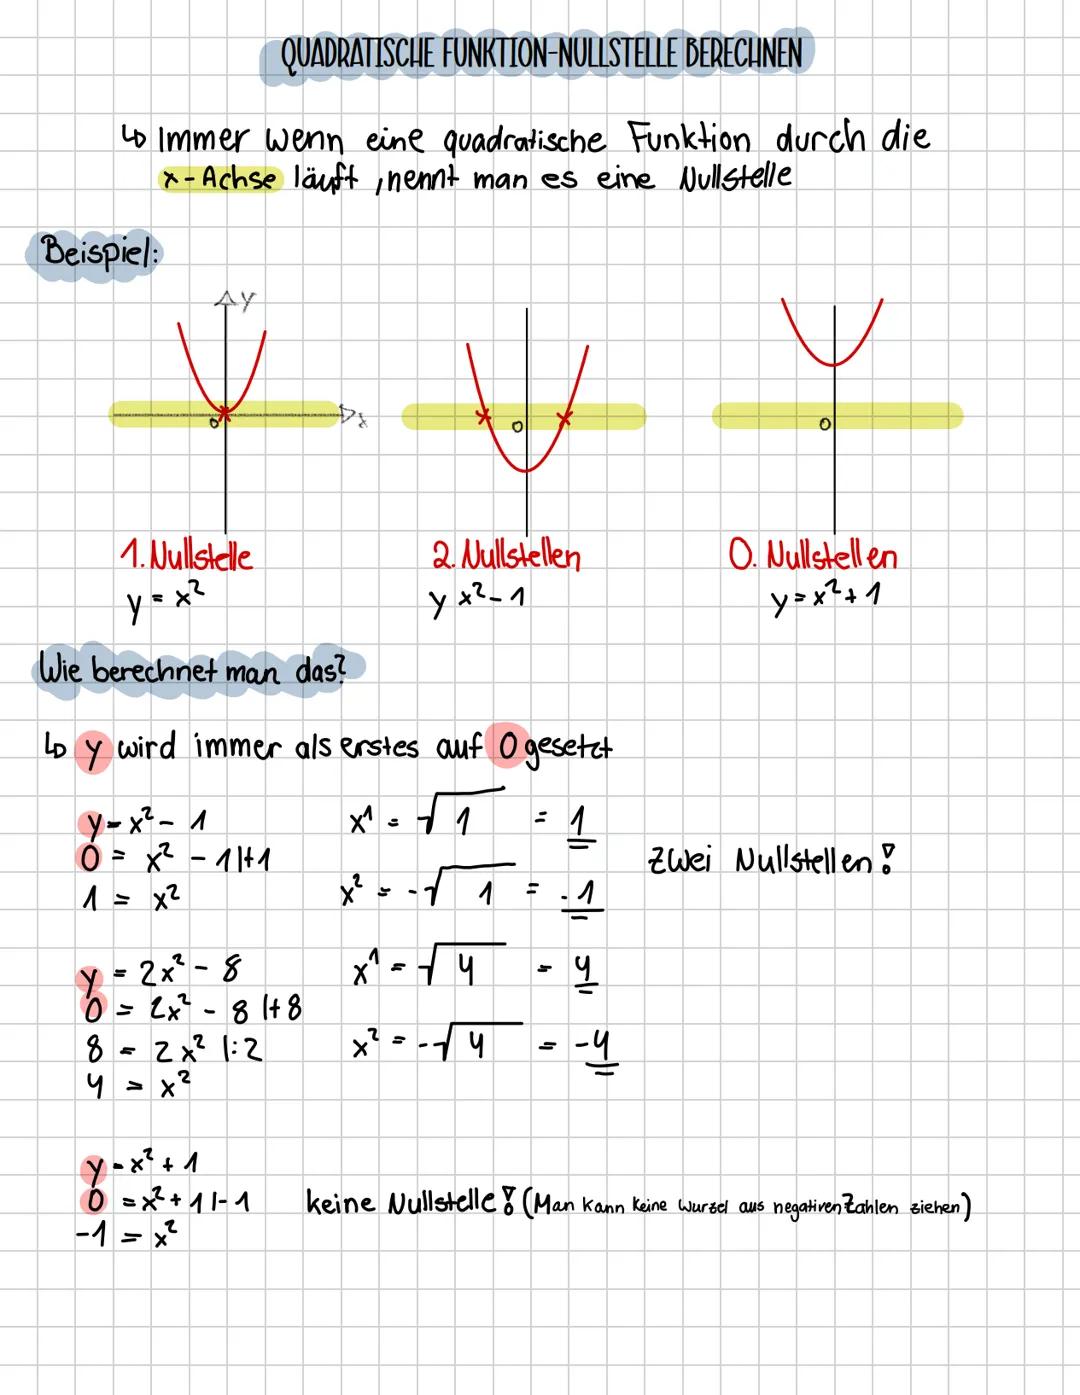 QUADRATISCHE FUNKTION-NULLSTELLE BERECHNEN
↳ Immer wenn eine quadratische Funktion durch die
x-Achse läuft, nennt man es eine Nullstelle
Beispiel:
y
x
0
0
0
1. Nullstelle
2. Nullstellen
0. Nullstellen
y = x²
y x² - 1
y = x² + 1
Wie berechnet man das?
↳ y wird immer als erstes auf 0 gesetzt
y = x² - 1
0 = x² - 1 |+1
1 = x²
x¹ = √1 = 1
x² = -√1 = -1
Zwei Nullstellen!
y = 2x² - 8
0 = 2x² - 8 |+8
8 = 2x² |:2
4 = x²
x¹ = √4 = 4
x² = -√4 = -4
y = x² + 1
0 = x² + 1 |-1
-1 = x²
keine Nullstelle! (Man kann keine Wurzel aus negativen Zahlen ziehen)